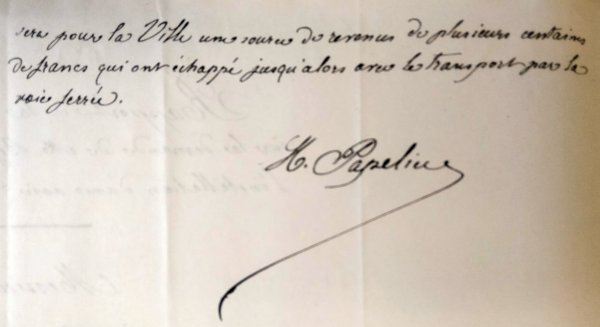 sera pour la Ville une source de revenus de plusieurs centaines
de francs qui ont échappé jusqu'alors avec le transport par la
voie ferrée.
H. Papelin